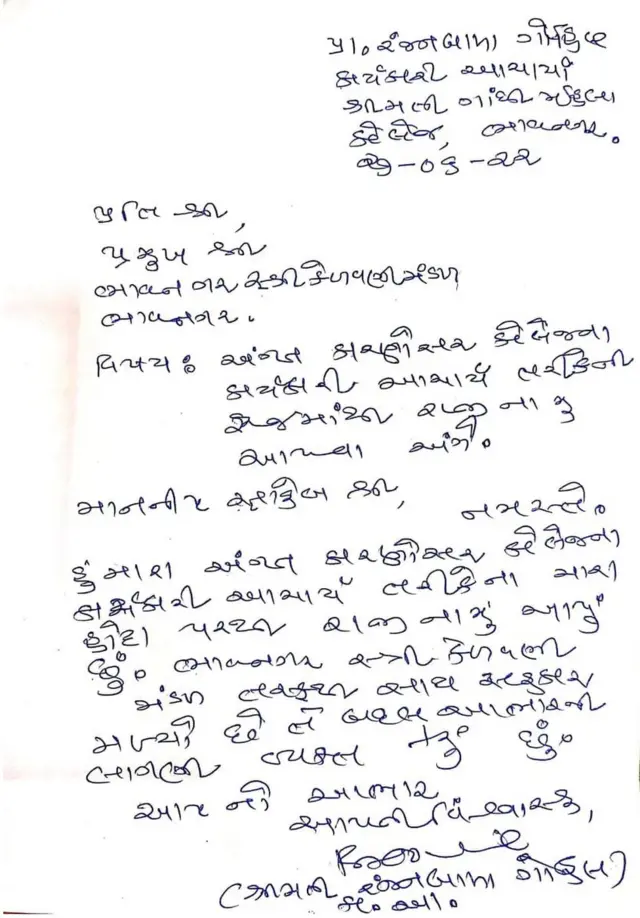 પ્રા. રંજનબાળા ગોહિલ
કાર્યકારી આચાર્યા
શ્રીમતી ગાંધી મહિલા
કોલેજ, ભાવનગર.
-૦૬-૨૨
પ્રતિ શ્રી,
પ્રમુખ શ્રી
ભાવનગર સ્ત્રી કેળવણી મંડળ
ભાવનગર.
વિષય : અંગત કારણોસર કોલેજના
કાર્યકારી આચાર્ય તરીકેની
ફરજમાંથી રાજીનામુ
આપવા અંગે.
માનનીય સાહેબ શ્રી, નમસ્તે.
હું મારા અંગત કારણોસર કોલેજના
કાર્યકારી આચાર્ય તરીકેના મારા
હોદ્દા પરથી રાજીનામું આપું
છું. ભાવનગર સ્ત્રી કેળવણી
મંડળ તરફથી સાથ સહકાર
મળ્યો છે તે બદલ આભારની
લાગણી વ્યક્ત કરું છું.
આપનો આભાર
આપની વિશ્વાસુ,
(શ્રીમતી રંજનબાળા ગોહિલ)
કા. આ.